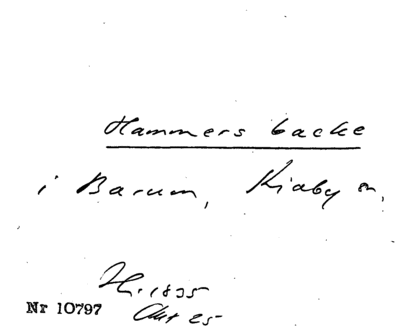 Hammers backe
i Barum, Kiaby sn.
H. 1835
Nr 10797
Akt 25